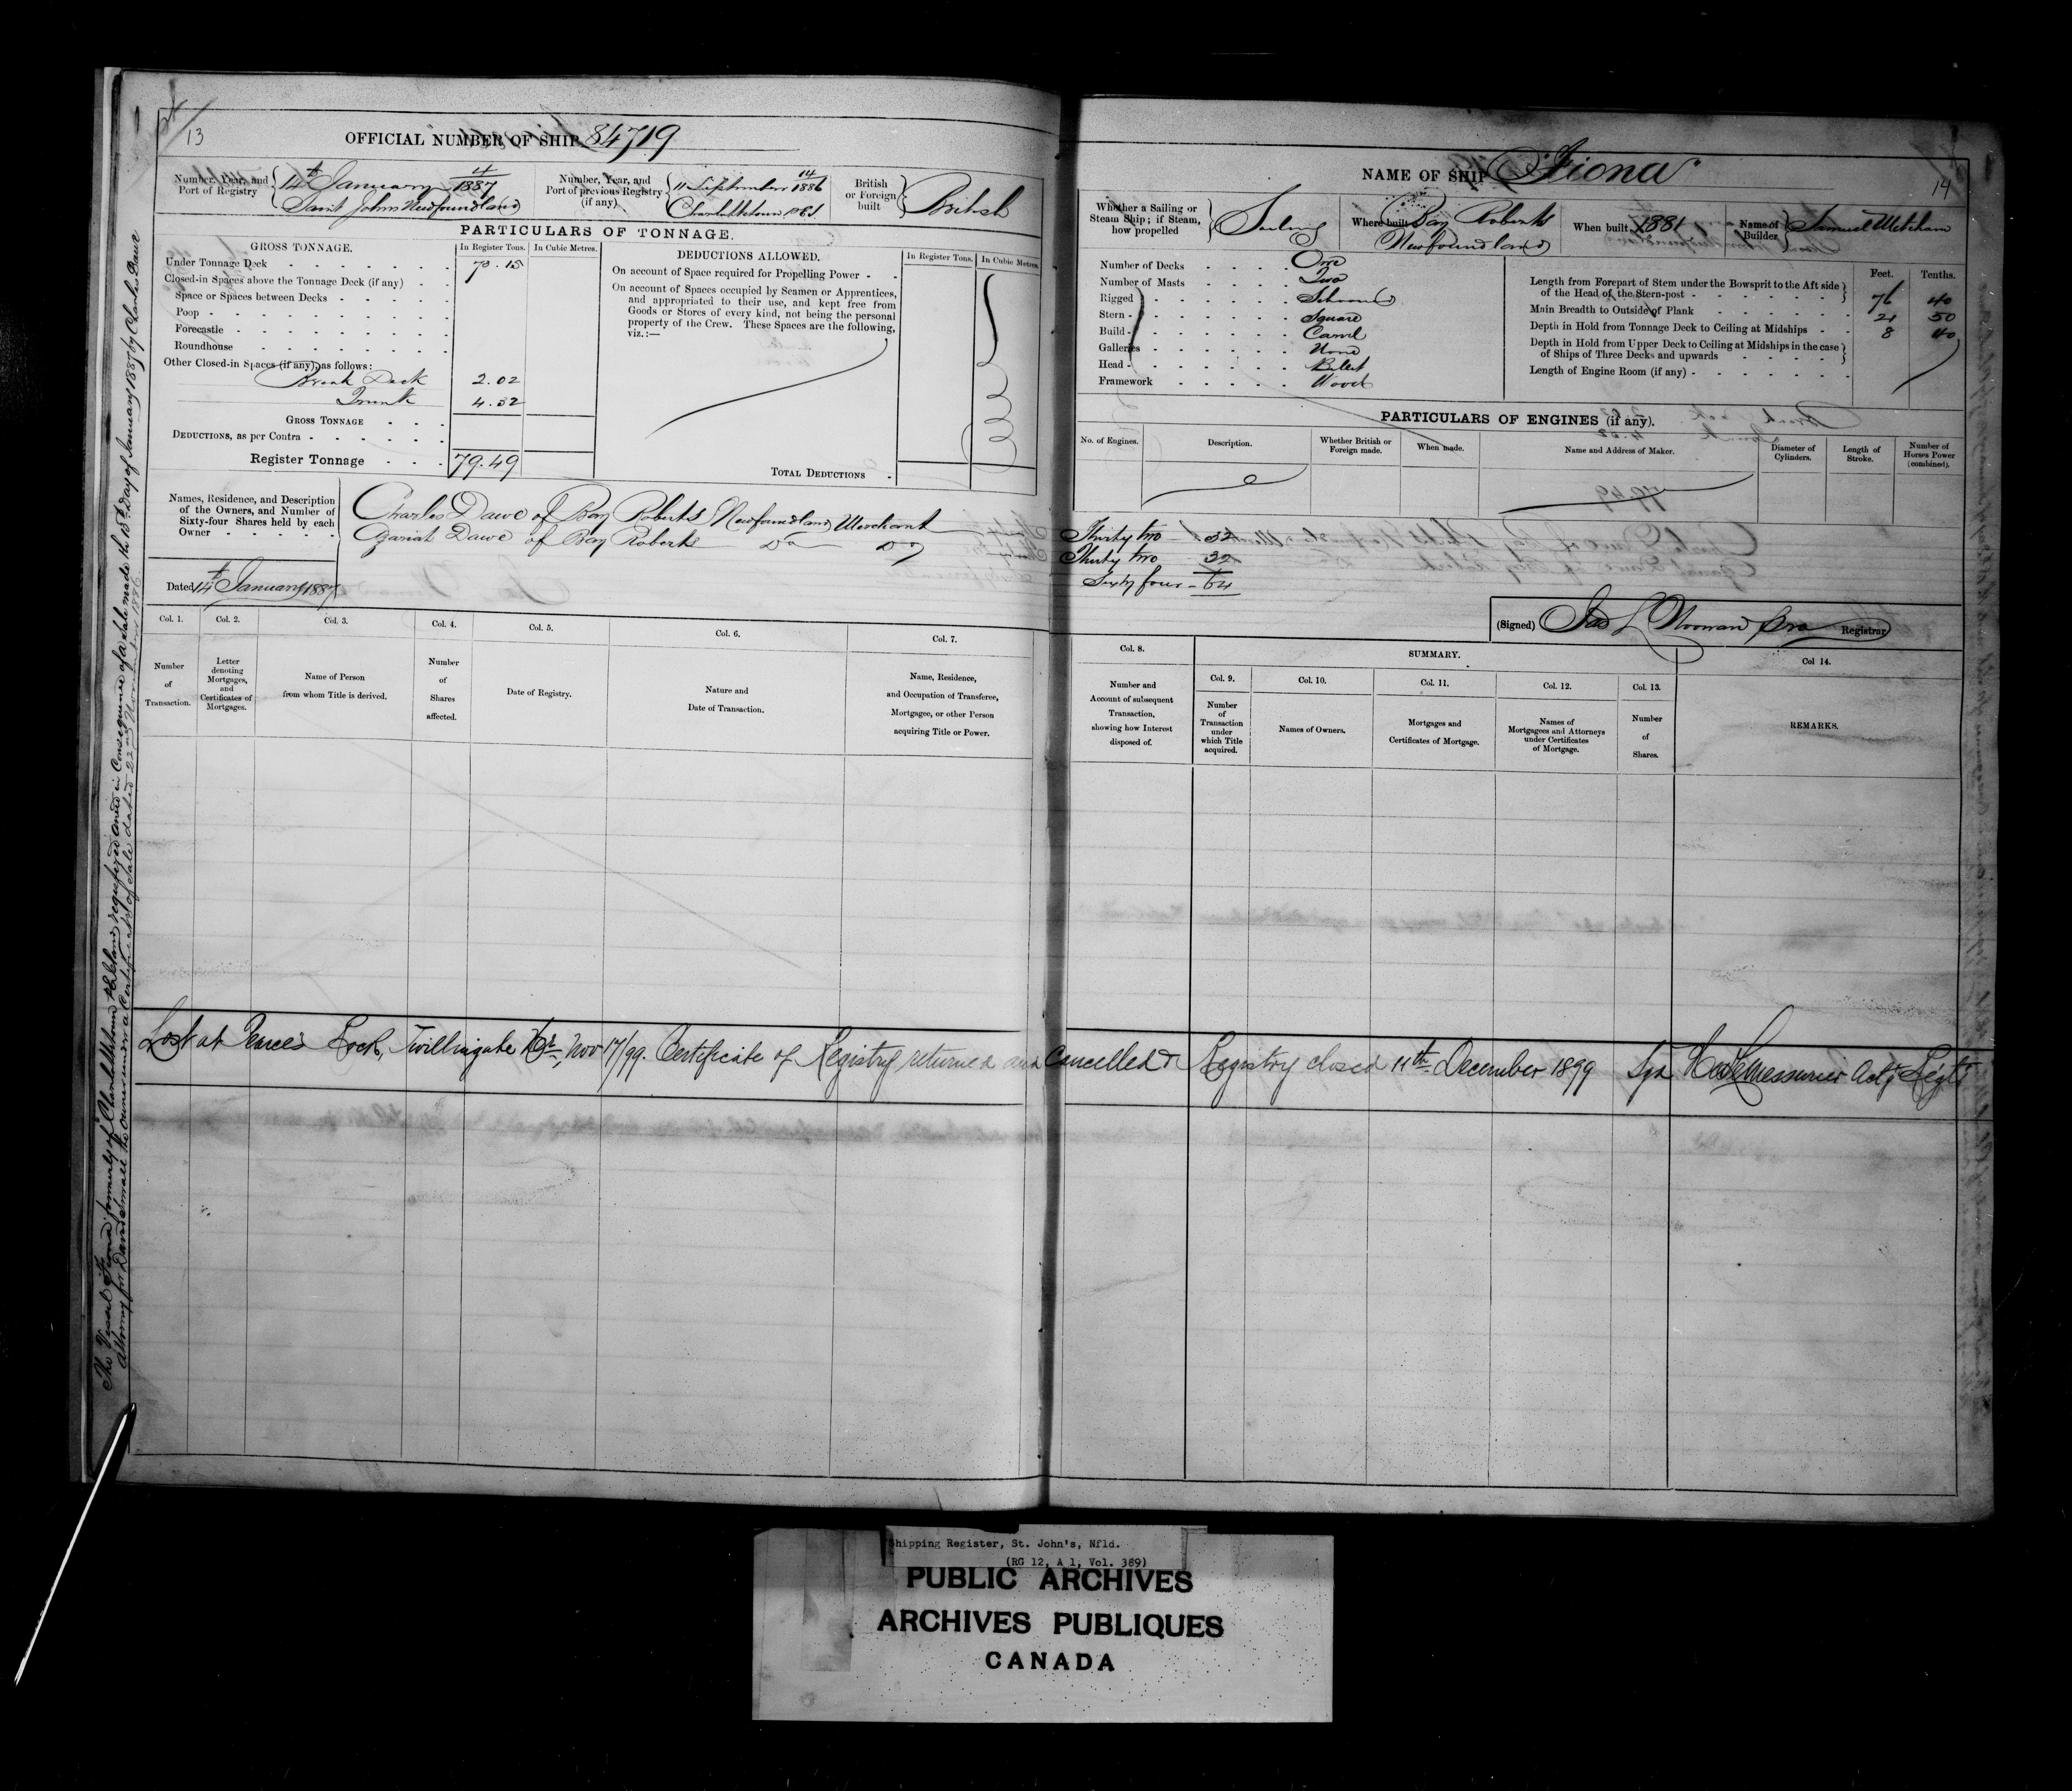 13
OFFICIAL NUMBER OF SHIP 84719
Number, Year, and Port of Registry
4
14th January 1887
Saint Johns Newfoundland
Number, Year, and Port of previous Registry (if any)
14
11 September 1886
Charlottetown PEI
British or Foreign built
British
PARTICULARS OF TONNAGE.
GROSS TONNAGE.
In Register Tons.
In Cubic Metres.
Under Tonnage Deck 70.15
Closed-in Spaces above the Tonnage Deck (if any)
Space or Spaces between Decks
Poop
Forecastle
Roundhouse
Other Closed-in Spaces (if any), as follows:
Break Deck 2.02
Trunk 4.32
GROSS TONNAGE
DEDUCTIONS, as per Contra
Register Tonnage 79.49
DEDUCTIONS ALLOWED.
In Register Tons.
In Cubic Metres.
On account of Space required for Propelling Power
On account of Spaces occupied by Seamen or Apprentices,
and appropriated to their use, and kept free from
Goods or Stores of every kind, not being the personal
property of the Crew. These Spaces are the following,
viz.:—
TOTAL DEDUCTIONS
Names, Residence, and Description
of the Owners, and Number of
Sixty-four Shares held by each
Owner
Charles Dawe of Bay Roberts Newfoundland Merchant
Azariah Dawe of Bay Roberts Do Do
Dated 14th January 1887
Col. 1. Col. 2. Col. 3. Col. 4. Col. 5. Col. 6. Col. 7.
Number of Transaction.
Letter denoting Mortgages, and Certificates of Mortgages.
Name of Person from whom Title is derived.
Number of Shares affected.
Date of Registry.
Nature and Date of Transaction.
Name, Residence, and Occupation of Transferee, Mortgagee, or other Person acquiring Title or Power.
NAME OF SHIP "Fiona"
14
Whether a Sailing or Steam Ship; if Steam, how propelled
Sailing
Where built
Bay Roberts
Newfoundland
When built 1881
Name of Builder
Samuel
Number of Decks One
Number of Masts Two
Rigged Schooner
Stern Square
Build Carvel
Galleries None
Head Billet
Framework Wood
Feet. Tenths.
Length from Forepart of Stem under the Bowsprit to the Aft side
of the Head of the Stern-post 76 40
Main Breadth to Outside of Plank 21 50
Depth in Hold from Tonnage Deck to Ceiling at Midships 8 40
Depth in Hold from Upper Deck to Ceiling at Midships in the case
of Ships of Three Decks and upwards
Length of Engine Room (if any)
PARTICULARS OF ENGINES (if any).
No. of Engines.
Description.
Whether British or Foreign made.
When made.
Name and Address of Maker.
Diameter of Cylinders.
Length of Stroke.
Number of Horses Power (combined).
Thirty two 32
Thirty two 32
Sixty four - 64
(Signed) Jas L Noonan Registrar
Col. 8.
Number and Account of subsequent Transaction, showing how Interest disposed of.
SUMMARY.
Col. 9. Col. 10. Col. 11. Col. 12. Col. 13. Col 14.
Number of Transaction under which Title acquired.
Names of Owners.
Mortgages and Certificates of Mortgage.
Names of Mortgagees and Attorneys under Certificates of Mortgage.
Number of Shares.
REMARKS.
Lost at Pearce's Rock, Twillingate Hr, Nov 17/99. Certificate of Registry returned and cancelled & Registry closed 11th December 1899 Sgd H W LeMessurier Actg Regtr
The Vessel "Fiona" formerly of Charlottetown P E Island, registered anew in Consequence of a sale made the 13th Day of January 1887 by Charles Dawe
Attorney for Daniel Small the owner under a Certificate of Sale dated 22nd November 1886.
Shipping Register, St. John's, Nfld.
(RG 12, A 1, Vol. 389)
PUBLIC ARCHIVES
ARCHIVES PUBLIQUES
CANADA